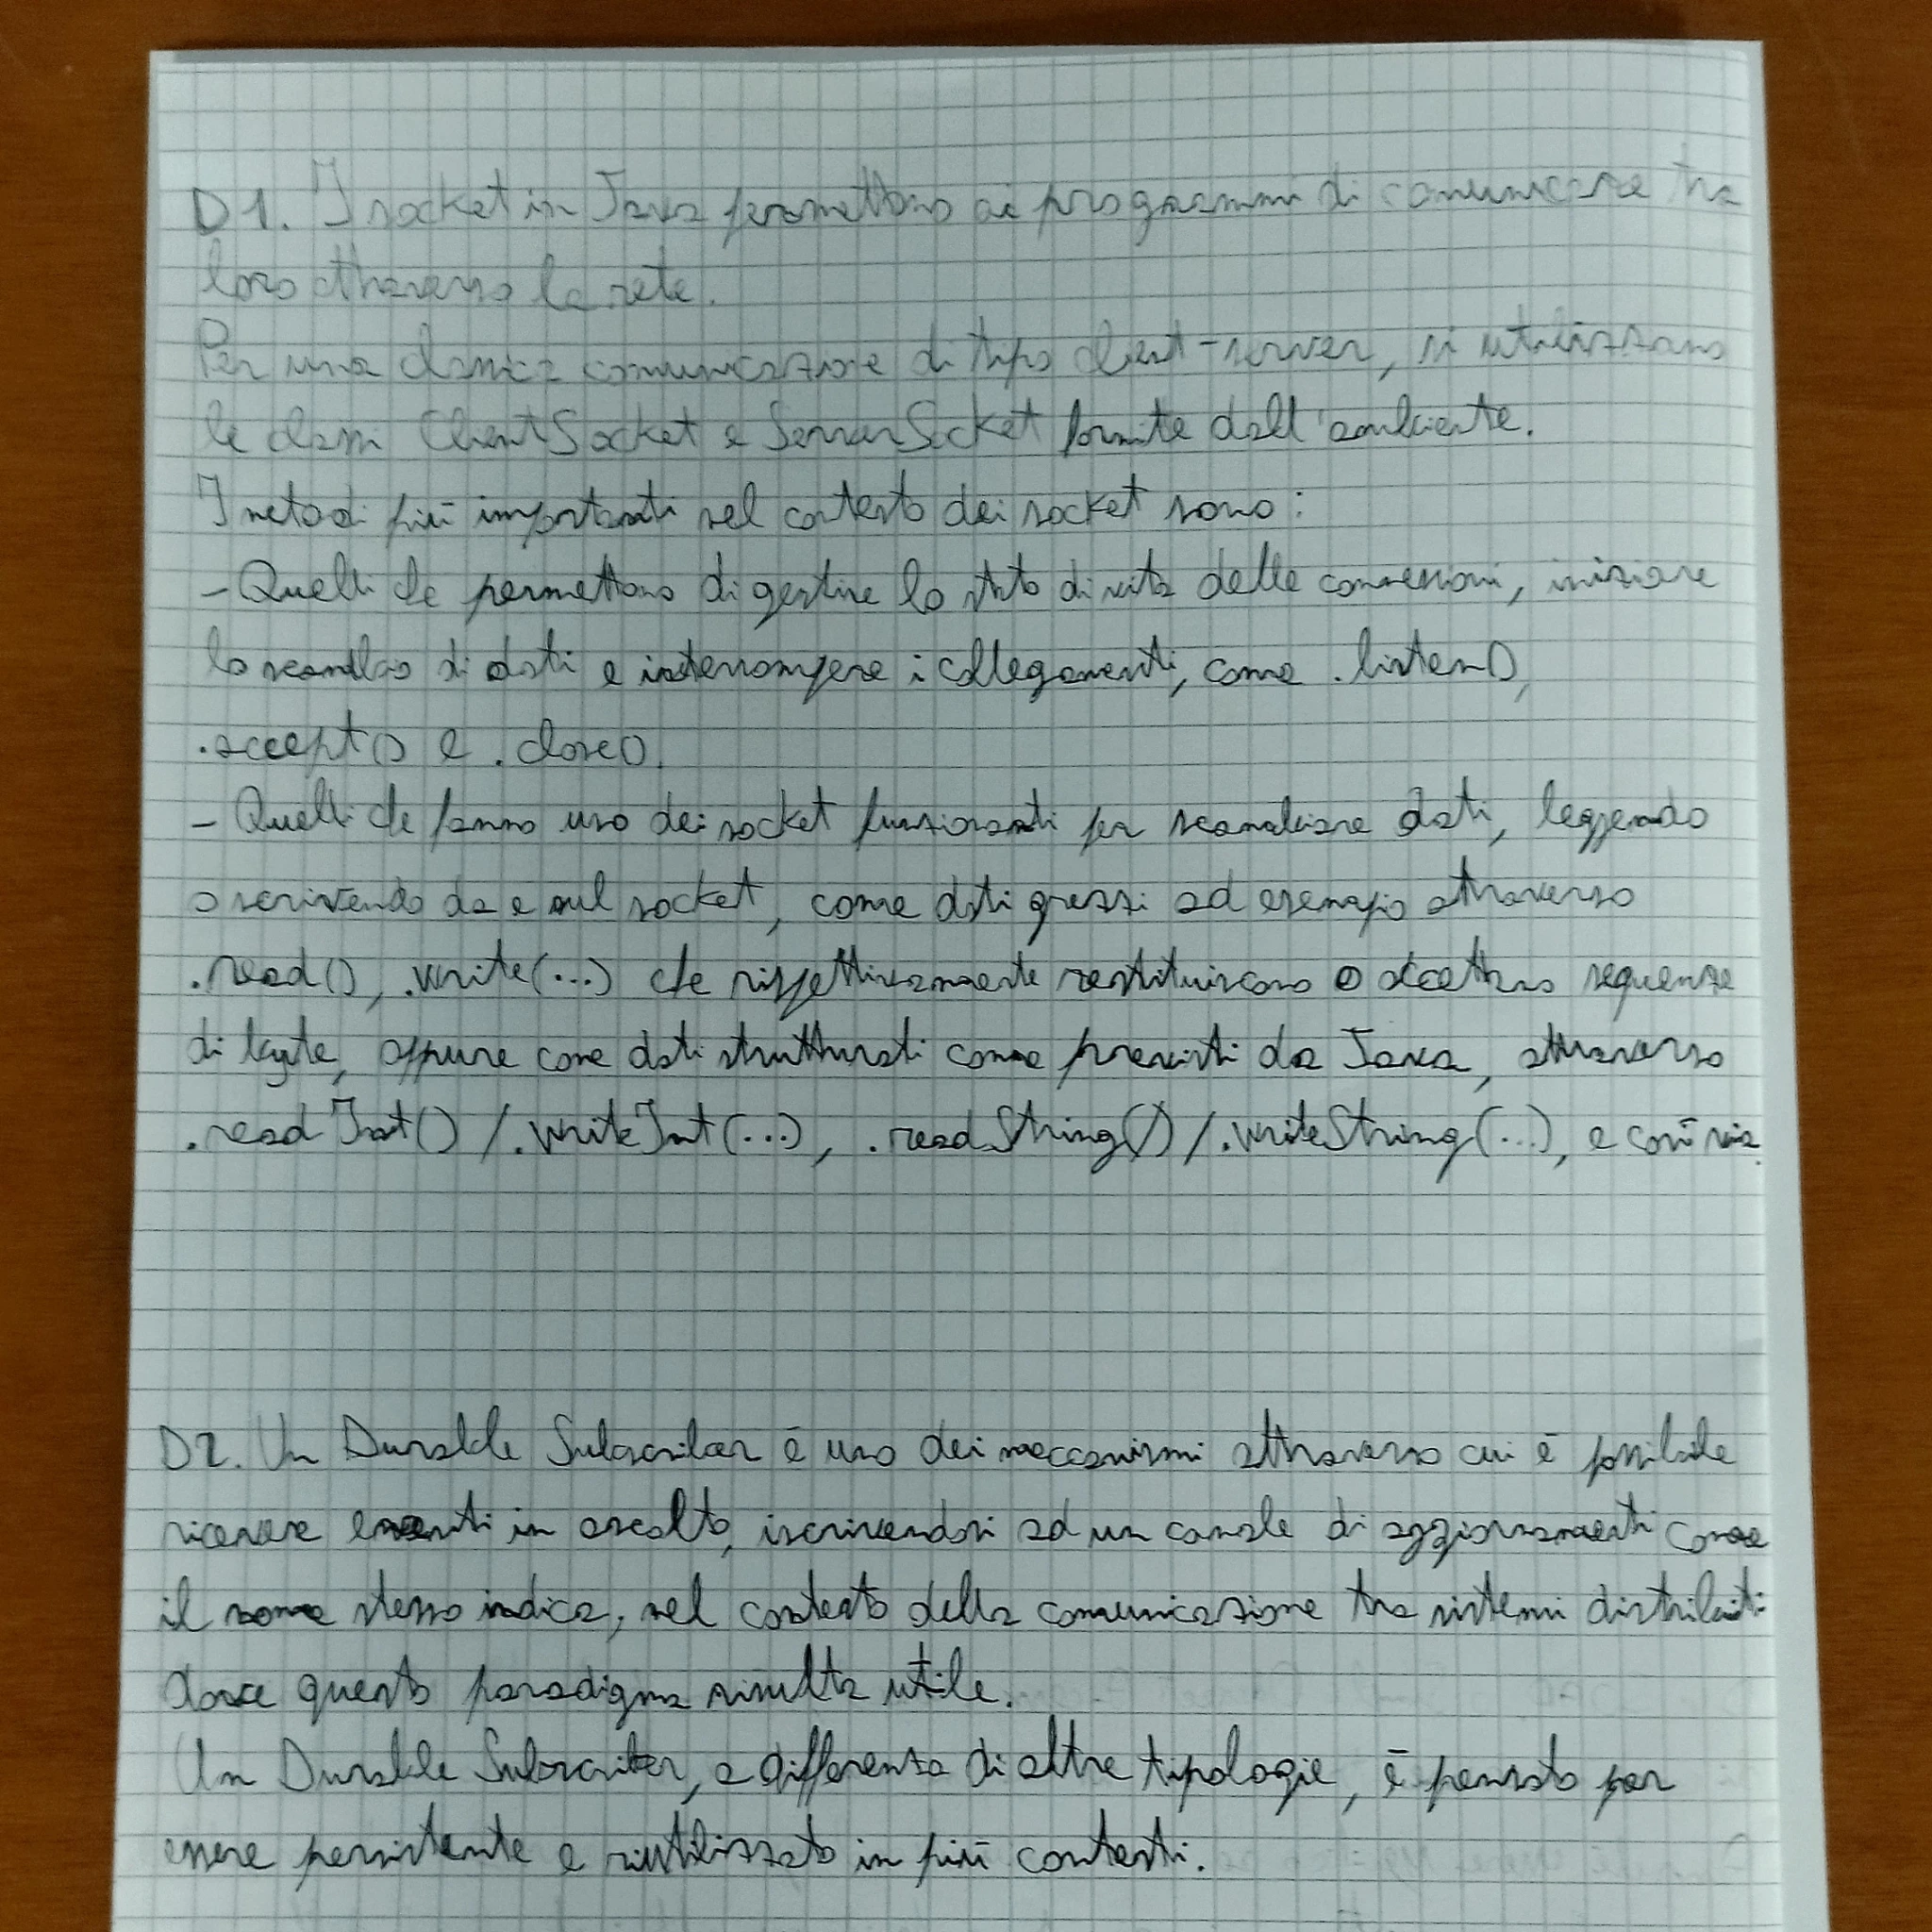 D1. I socket in Java permettono ai programmi di comunicare tra
loro attraverso la rete.
Per una classica comunicazione di tipo client-server, si utilizzano
le classi ClientSocket e ServerSocket fornite dall'ambiente.
I metodi più importanti nel contesto dei socket sono:
- Quelli che permettono di gestire lo stato di vita delle connessioni, iniziare
lo scambio di dati e interrompere i collegamenti, come .listen(),
.accept() e .close().
- Quelli che fanno uso dei socket funzionanti per scambiare dati, leggendo
o scrivendo da e sul socket, come dati grezzi ad esempio attraverso
.read(), .write(...) che rispettivamente restituiscono o accettano sequenze
di byte, oppure come dati strutturati come previsti da Java, attraverso
.readInt() / .writeInt(...), .readString() / .writeString(...), e così via.
D2. Un Durable Subscriber è uno dei meccanismi attraverso cui è possibile
ricevere eventi in ascolto, iscrivendosi ad un canale di aggiornamenti come
il nome stesso indica, nel contesto della comunicazione tra sistemi distribuiti
dove questo paradigma risulta utile.
Un Durable Subscriber, a differenza di altre tipologie, è pensato per
essere persistente e riutilizzato in più contesti.